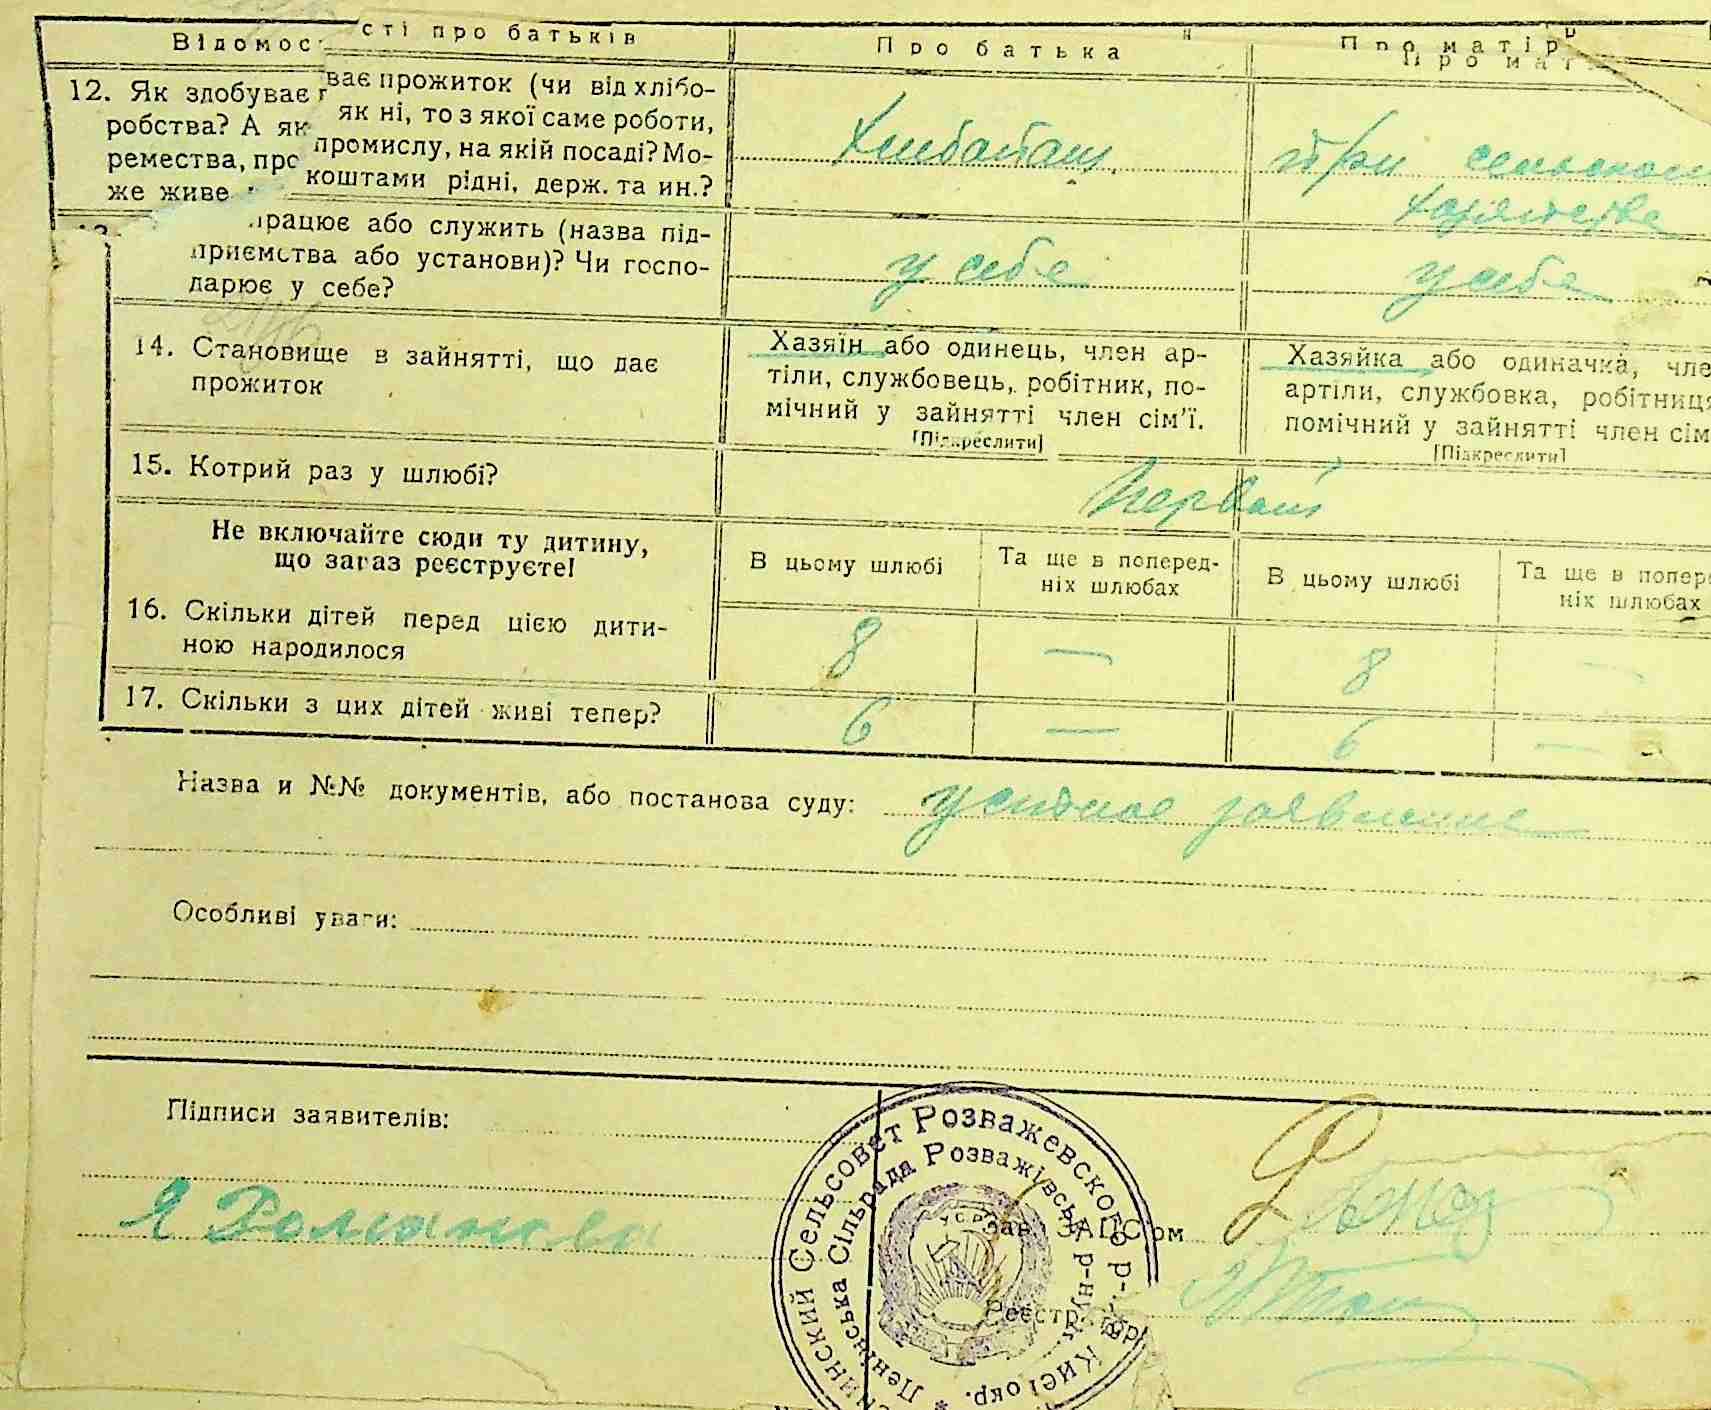 Відомості про батьків
Про батька
Про матір
12. Як здобуває прожиток (чи від хлібо-
робства? А як ні, то з якої саме роботи,
ремества, промислу, на якій посаді? Мо-
же живе коштами рідні, держ. та ин.?
Хлибопаш.
При сельском
хозяйстве
працює або служить (назва під-
приємства або установи)? Чи госпо-
дарює у себе?
у себе
у себе
14. Становище в зайнятті, що дає
прожиток
Хазяїн або одинець, член ар-
тіли, службовець, робітник, по-
мічний у зайнятті член сім'ї.
[Підкреслити]
Хазяйка або одиначка, чле
артіли, службовка, робітниця
помічний у зайнятті член сім
[Підкреслити]
15. Котрий раз у шлюбі?
Первый
Не включайте сюди ту дитину,
що зараз реєструєте!
В цьому шлюбі
Та ще в поперед-
ніх шлюбах
В цьому шлюбі
Та ще в попере
ніх шлюбах
16. Скільки дітей перед цією дити-
ною народилося
8 — 8 —
17. Скільки з цих дітей живі тепер?
6 — 6 —
Назва и №№ документів, або постанова суду: устное заявление
Особливі уваги:
Підписи заявителів:
Я Романова
Сельсовет Розважевского р-
Ленінська Сільрада Розважівськ р-ну
Київ окр.
УСРР
Зав. ЗАГС'ом
Реєстратор